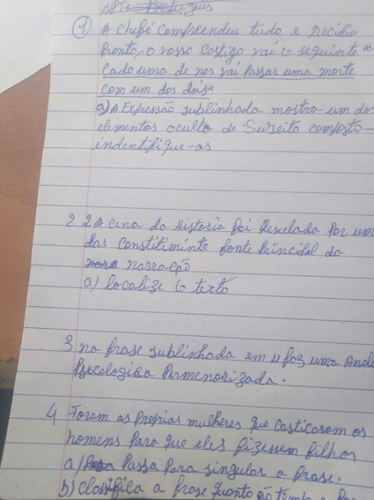 Português
1 A chefi compreendeu tudo e Decidiu
Pronto, o vosso castigo vai o seguinte
Cada uma de nos vai Passar uma noite
com um dos dois"
a) A Expressão sublinhada mostra um dos
elementos oculto de Sujeito composto-
indentifique-os
2 2 A cena da Historia foi Revelada Por uma
das constitiminte fonte Principal da
narração
a) localize o texto
3 na frase sublinhada em u faz uma Anali
Psocologica Permenorizada.
4 Foram as Proprias mulheres que casticaram os
homens Para que eles fizessem filhos
a) Passa Para singular a frase.
b) classifica a frase quanto